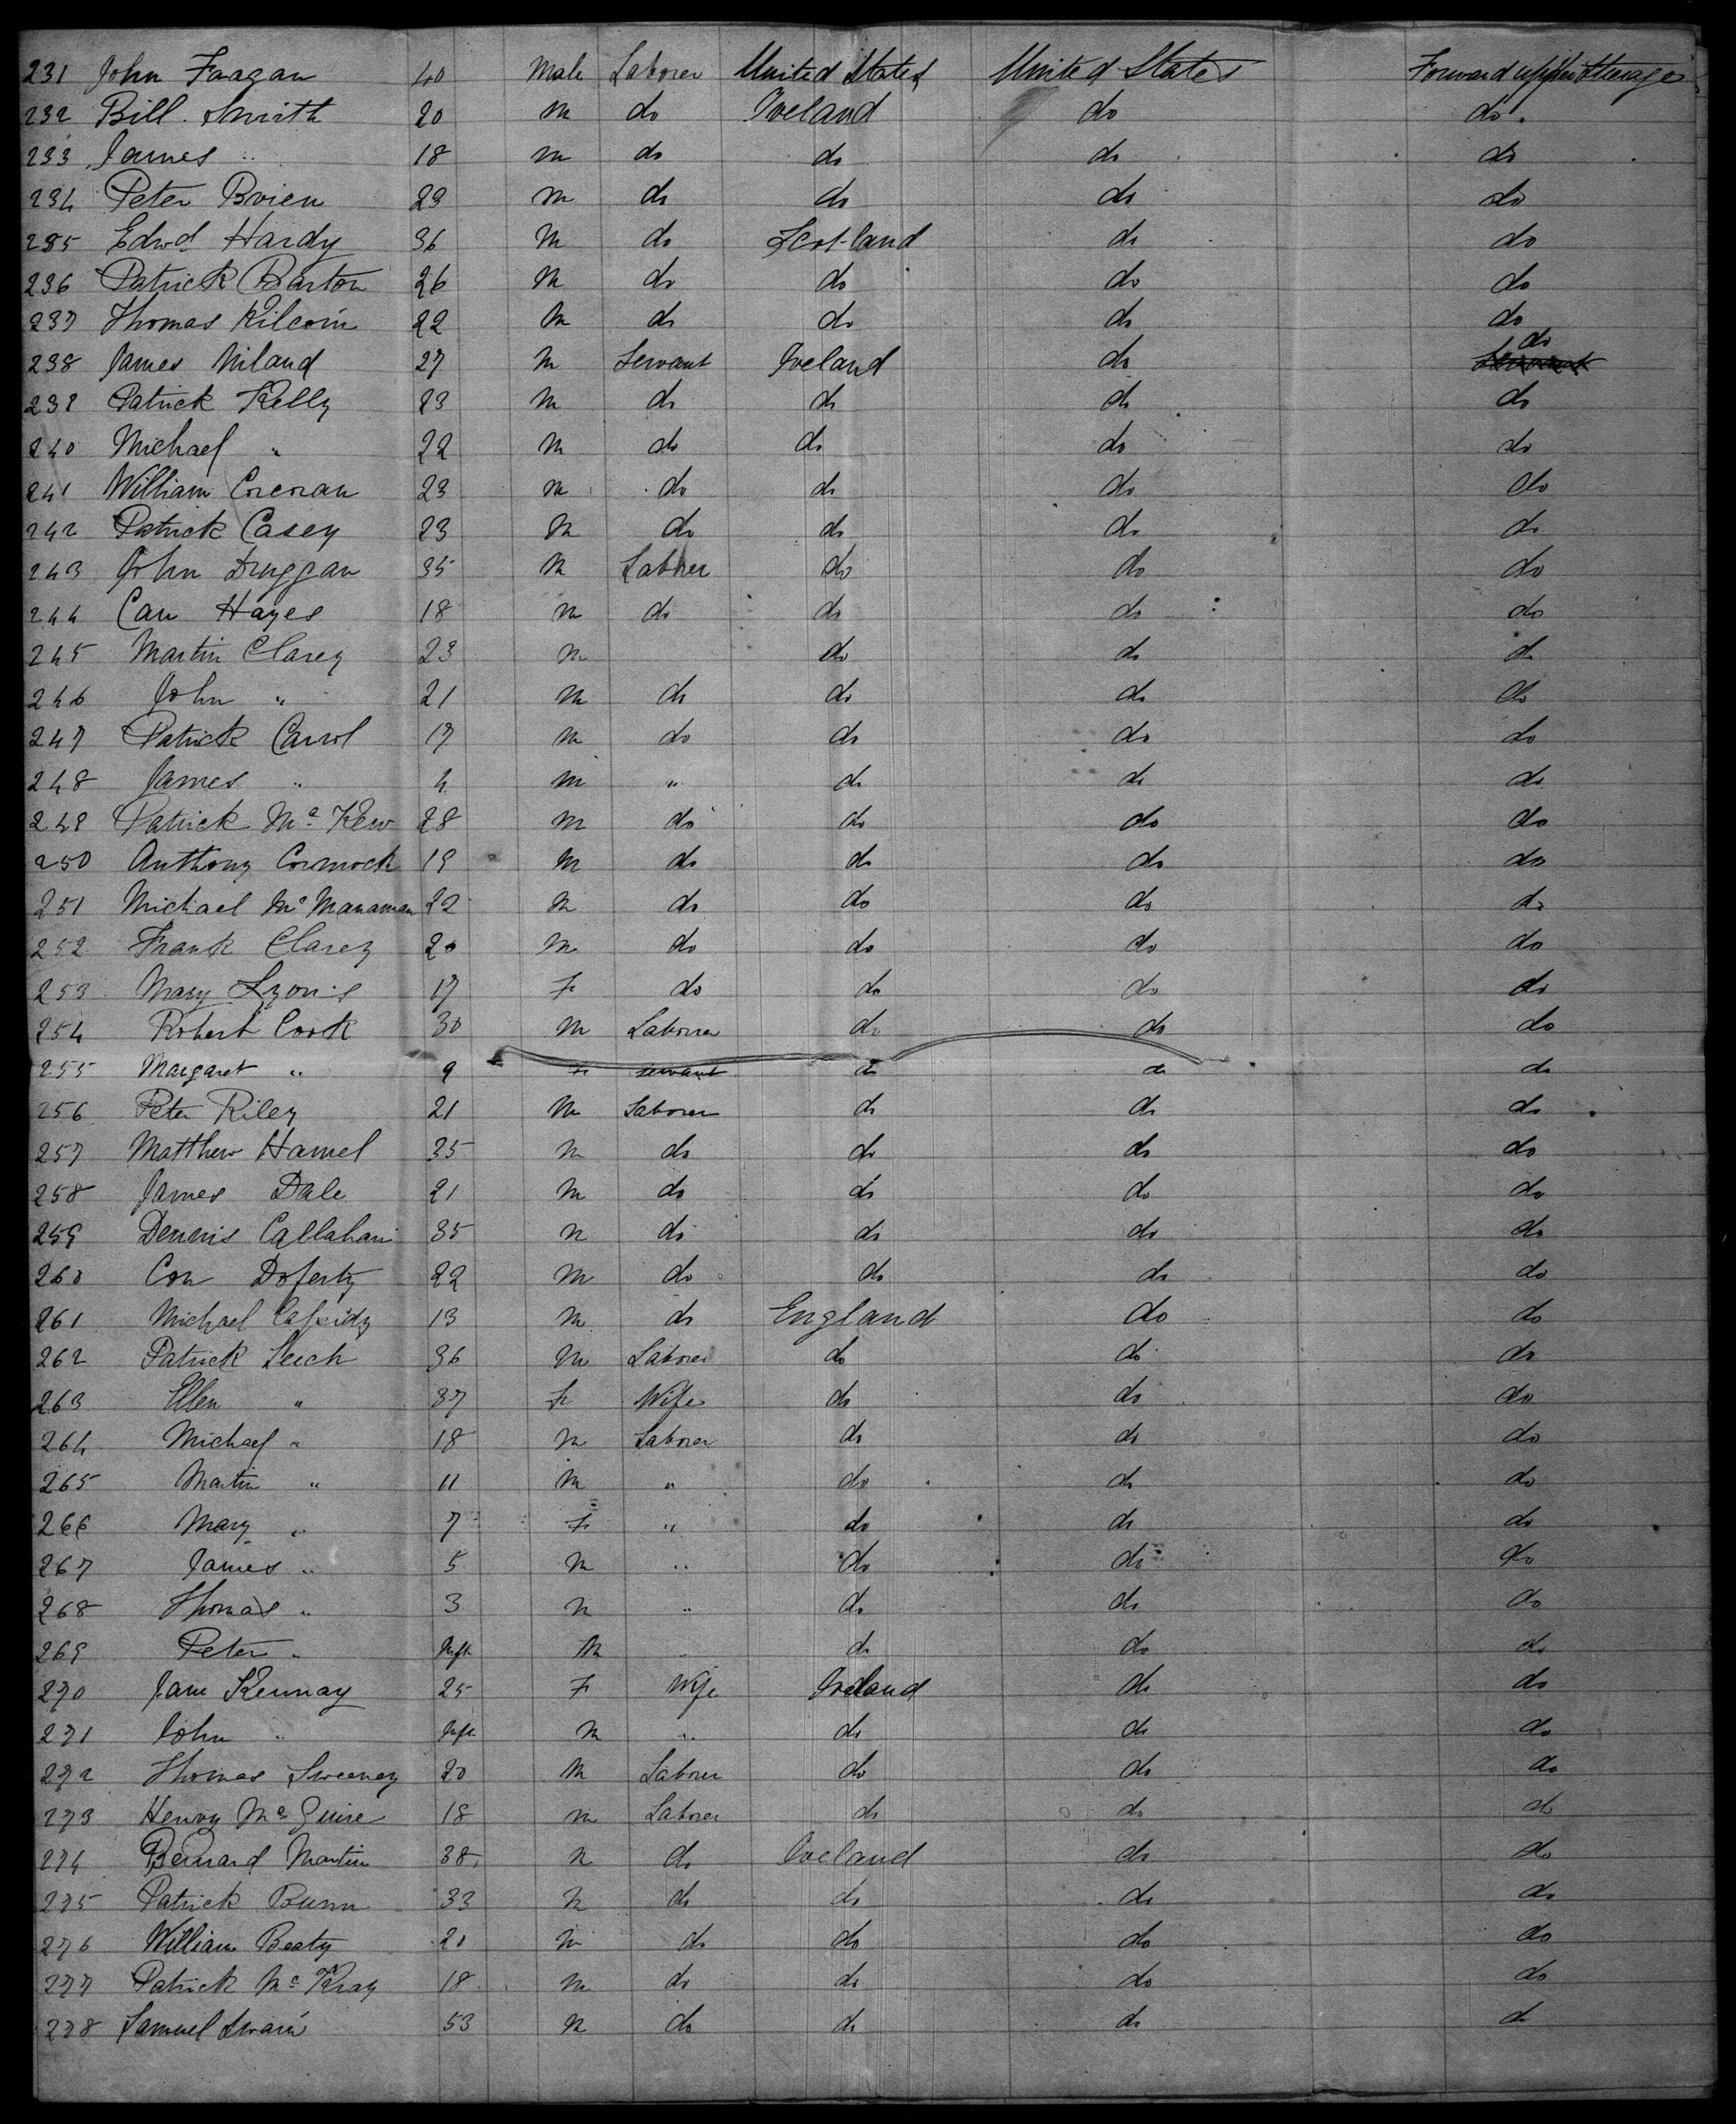 231 John Faagan 40 Male Laborer United States United States Forward upper Steerage
232 Bill. Smith 20 m do Ireland do do
233 James " 18 m do do do do
234 Peter Brien 23 m do do do do
235 Edwd Hardy 36 m do Scotland do do
236 Patrick Barton 26 m do do do do
237 Thomas Kilcoin 22 m do do do do
238 James Niland 27 m Servant Ireland do do
239 Patrick Kelly 23 m do do do do
240 Michael " 22 m do do do do
241 William Corcoran 23 m do do do do
242 Patrick Casey 23 m do do do do
243 John Druggan 35 m Laborer do do do
244 Can Hayes 18 m do do do do
245 Martin Clarey 23 m do do do
246 John " 21 m do do do do
247 Patrick Carrol 17 m do do do do
248 James " 4 m " do do do
249 Patrick Mc Kew 28 m do do do do
250 Anthony Cormock 19 m do do do do
251 Michael Mc Manaman 22 m do do do do
252 Frank Clarey 20 m do do do do
253 Mary Lyons 17 F do do do do
254 Robert Cook 30 m Laborer do do do
255 Margaret " 9 F servant do do do
256 Peter Riley 21 m Laborer do do do
257 Matthew Hamel 35 m do do do do
258 James Dale 21 m do do do do
259 Dennis Callahan 35 m do do do do
260 Con Doferty 22 m do do do do
261 Michael Cassidy 13 m do England do do
262 Patrick Leech 36 m Laborer do do do
263 Ellen " 37 F Wife do do do
264 Michael " 18 m Laborer do do do
265 Martin " 11 m " do do do
266 Mary " 7 F " do do do
267 James " 5 m " do do do
268 Thomas " 3 m " do do do
269 Peter " Inft m " do do do
270 Jane Kennay 25 F Wife Ireland do do
271 John " Inft m " do do do
272 Thomas Sweeney 20 m Laborer do do do
273 Henry Mc Guire 18 m Laborer do do do
274 Bernard Martin 38 m do Ireland do do
275 Patrick Bunn 33 m do do do do
276 William Beaty 20 m do do do do
277 Patrick Mc Kray 18 m do do do do
278 Samuel Swain 53 m do do do do